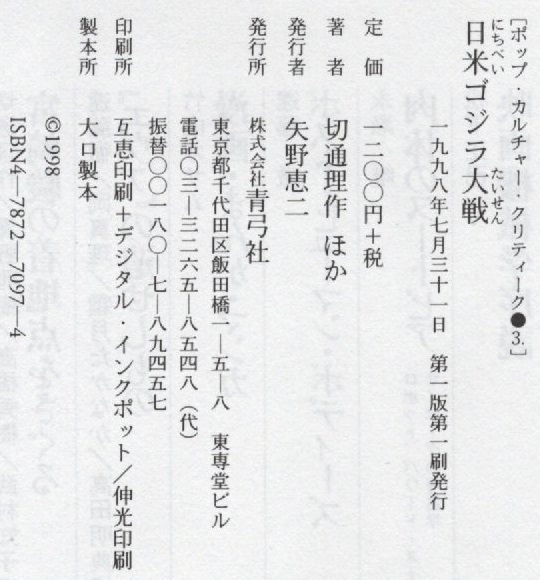 [ポップ カルチャー クリティーク●3.]
にちべい たいせん
日米ゴジラ大戦
一九九八年七月三十一日 第一版第一刷発行
定 価 一二〇〇円+税
著 者 切通理作 ほか
発行者 矢野恵二
発行所 株式会社青弓社
東京都千代田区飯田橋一―五―八 東専堂ビル
電話〇三―三二六五―八五四八(代)
振替〇〇一八〇―七―八九四五七
印刷所 互恵印刷+デジタル・インクポット/伸光印刷
製本所 大口製本
©1998
ISBN4―7872―7097―4